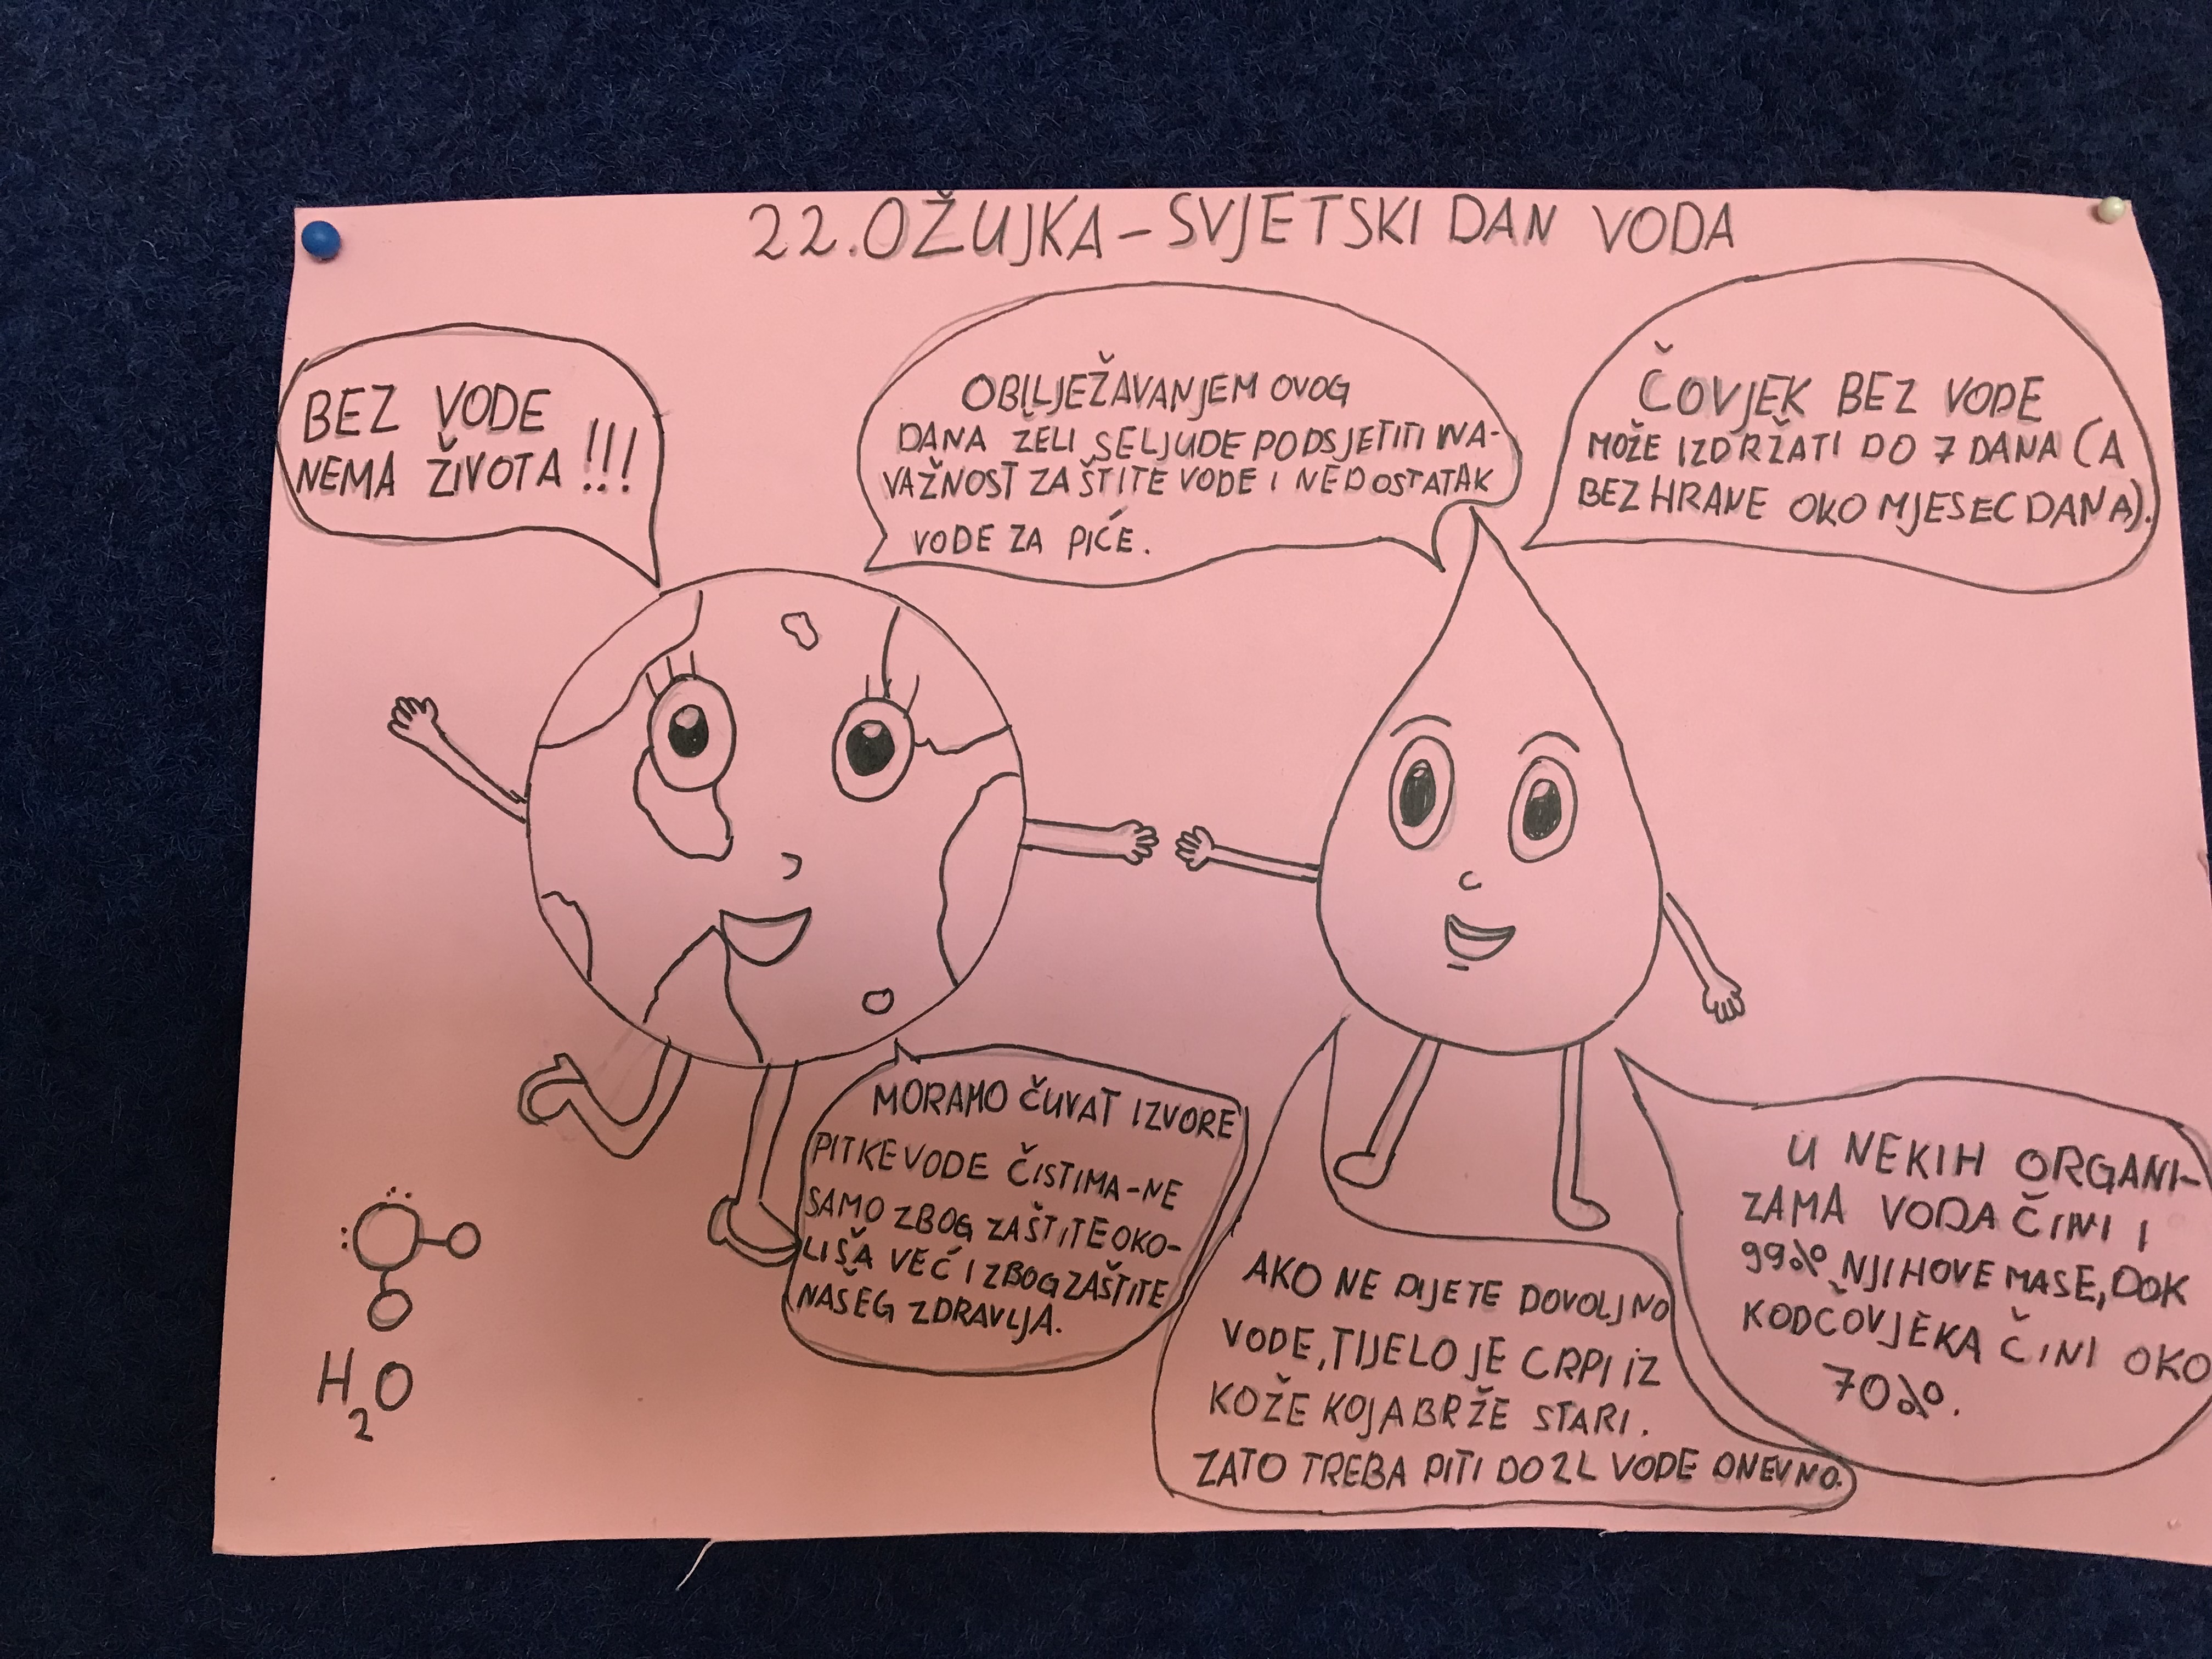 22. OŽUJKA - SVJETSKI DAN VODA
BEZ VODE
NEMA ŽIVOTA !!!
OBILJEŽAVANJEM OVOG
DANA ŽELI SE LJUDE PODSJETITI NA-
VAŽNOST ZAŠTITE VODE I NEDOSTATAK
VODE ZA PIĆE.
ČOVJEK BEZ VODE
MOŽE IZDRŽATI DO 7 DANA (A
BEZ HRANE OKO MJESEC DANA).
MORAMO ČUVAT IZVORE
PITKE VODE ČISTIMA - NE
SAMO ZBOG ZAŠTITE OKO-
LIŠA VEĆ I ZBOG ZAŠTITE
NAŠEG ZDRAVLJA.
AKO NE PIJETE DOVOLJNO
VODE, TIJELO JE CRPI IZ
KOŽE KOJA BRŽE STARI.
ZATO TREBA PITI DO 2L VODE DNEVNO.
U NEKIH ORGANI-
ZAMA VODA ČINI I
99% NJIHOVE MASE, DOK
KOD ČOVJEKA ČINI OKO
70%.
H2O